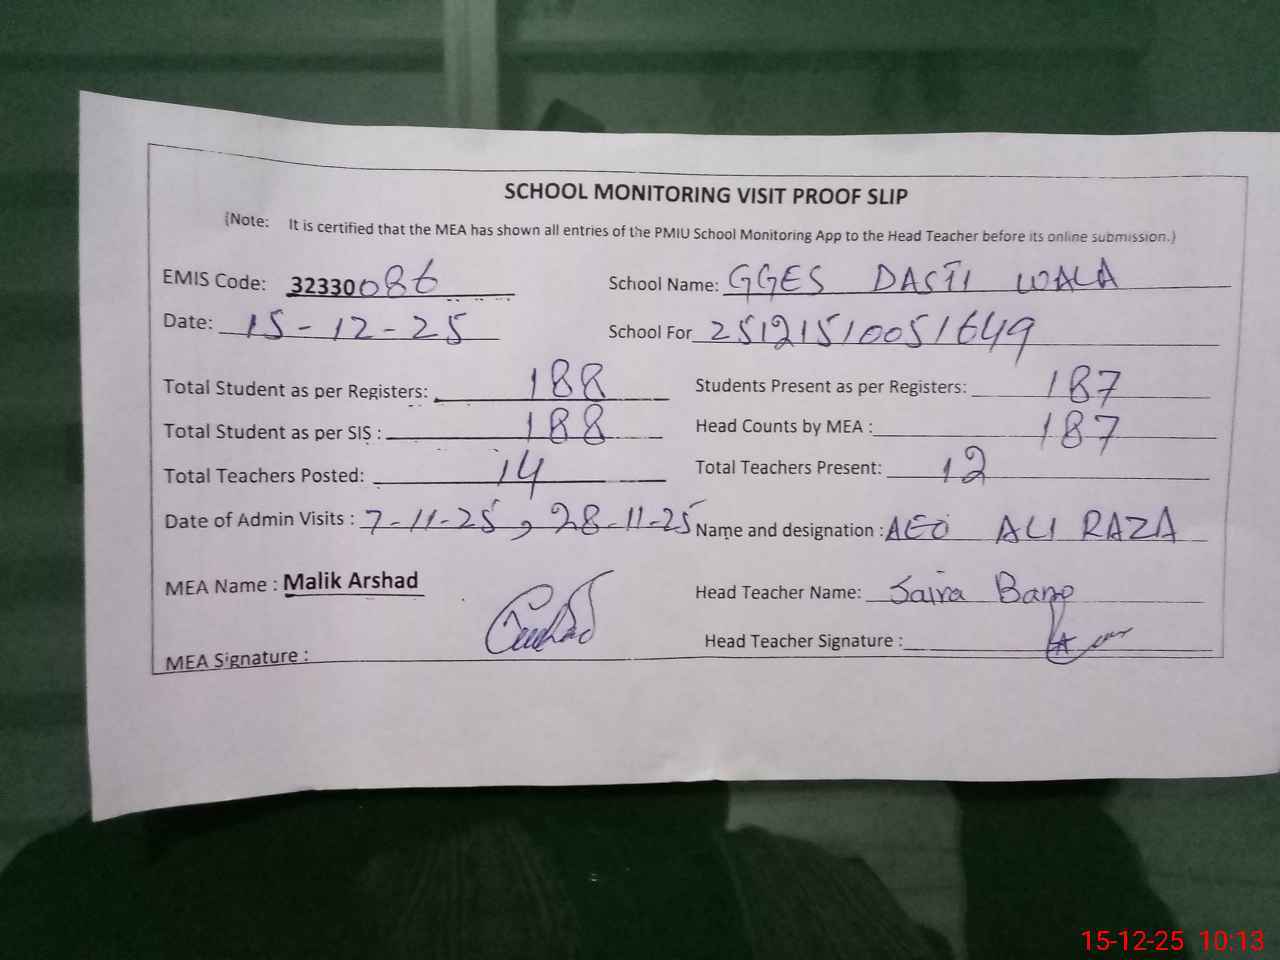 SCHOOL MONITORING VISIT PROOF SLIP
(Note: It is certified that the MEA has shown all entries of the PMIU School Monitoring App to the Head Teacher before its online submission.)
EMIS Code: 32330086 School Name: GGES DASTI WALA
Date: 15-12-25 School For 25121510051649
Total Student as per Registers: 188 Students Present as per Registers: 187
Total Student as per SIS : 188 Head Counts by MEA : 187
Total Teachers Posted: 14 Total Teachers Present: 12
Date of Admin Visits : 7-11-25, 28-11-25 Name and designation : AEO ALI RAZA
MEA Name : Malik Arshad Head Teacher Name: Saira Bano
MEA Signature : Head Teacher Signature :
15-12-25 10:13